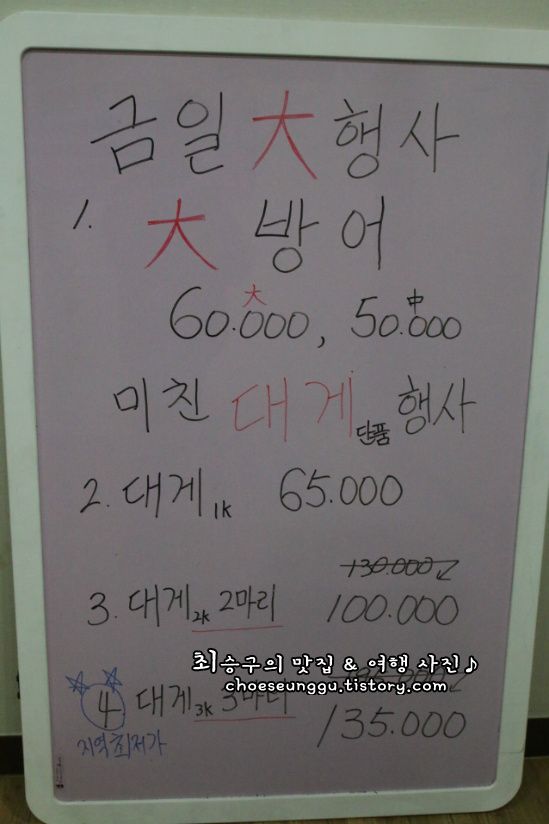 금일 大 행사
1. 大 방어
大 中
60.000, 50.000
미친 대게 단품 행사
2. 대게 1k 65.000
130.000
3. 대게 2k 2마리 100.000
최승구의 맛집 & 여행 사진♪
choeseunggu.tistory.com
4 대게 3k 3마리
135.000
지역최저가